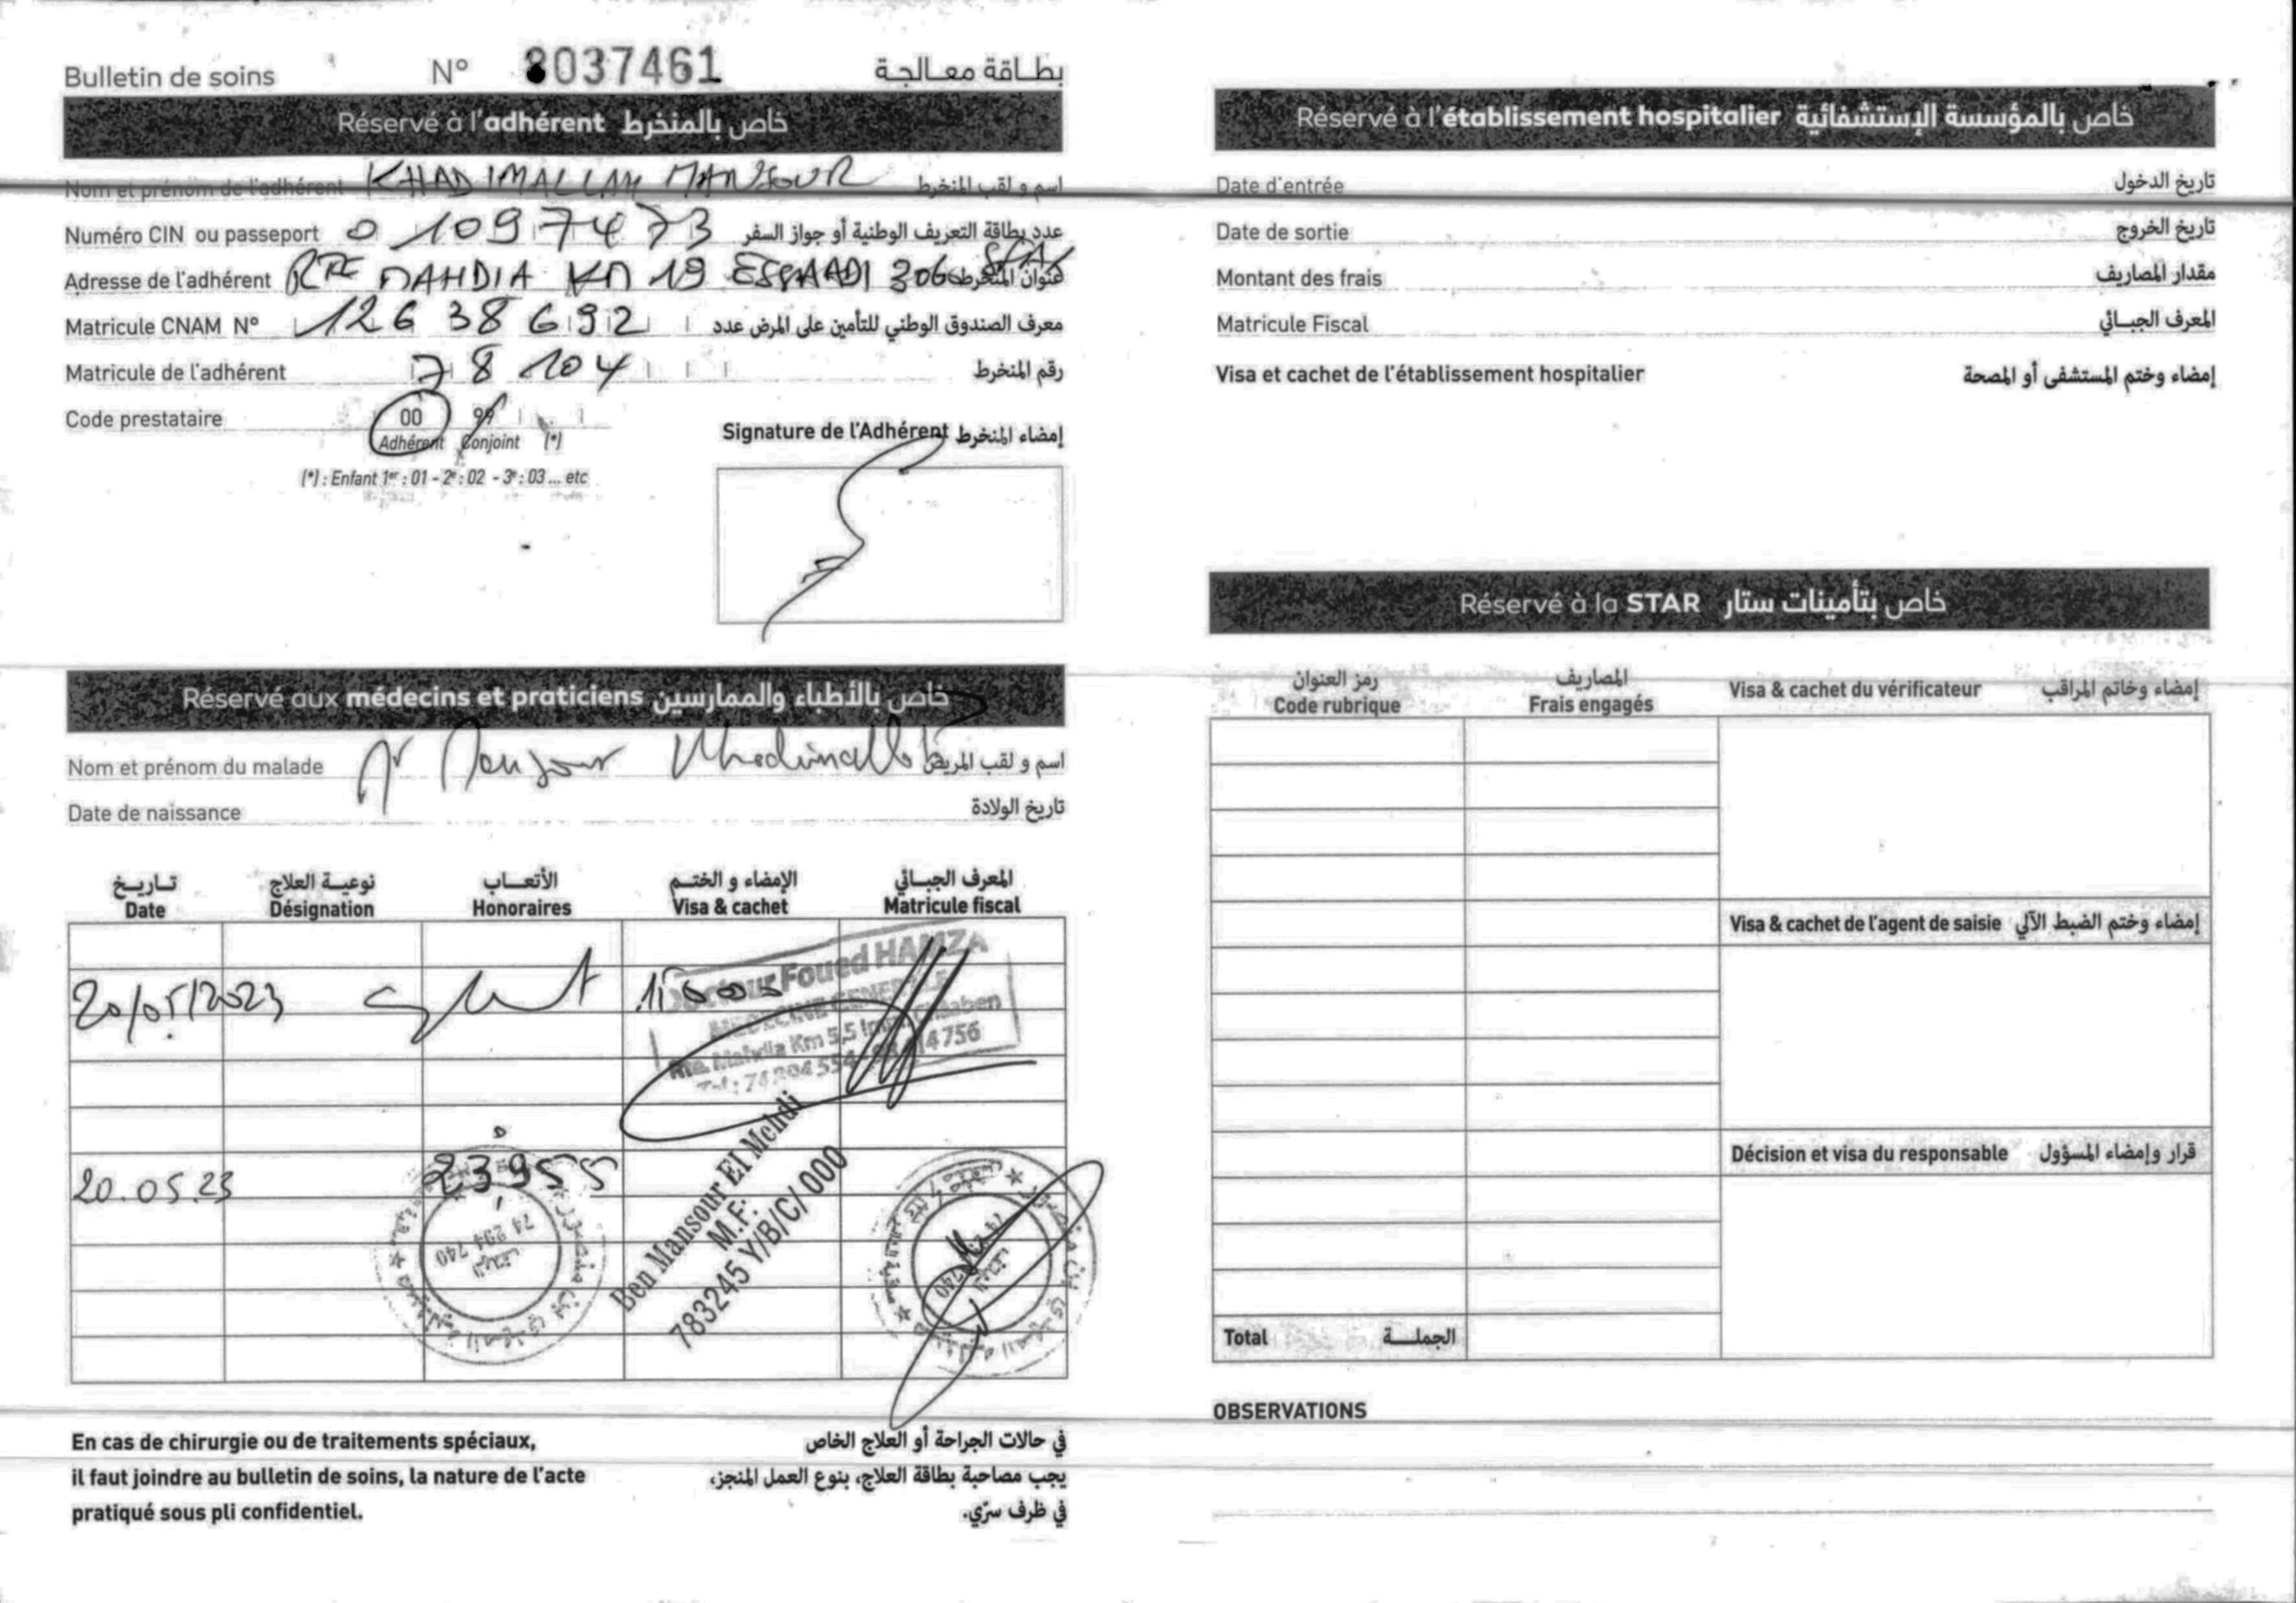 Bulletin de soins N° 8037461 بطاقة معالجة
Réservé à l'adhérent خاص بالمنخرط
Nom et prénom de l'adhérent KHADIMALLAH MANSOUR اسم و لقب المنخرط
Numéro CIN ou passeport 01097473 عدد بطاقة التعريف الوطنية أو جواز السفر
Adresse de l'adhérent RTE MAHDIA KM 19 ESSAADI 306 SFAX عنوان المنخرط
Matricule CNAM N° 12638692 معرف الصندوق الوطني للتأمين على المرض عدد
Matricule de l'adhérent 78104 رقم المنخرط
Code prestataire 00 99
Adhérent Conjoint (*)
(*) : Enfant 1er : 01 - 2e : 02 - 3e : 03 ... etc
Signature de l'Adhérent إمضاء المنخرط
Réservé aux médecins et praticiens خاص بالأطباء والممارسين
Nom et prénom du malade Mr Mansour Khadimallah اسم و لقب المريض
Date de naissance تاريخ الولادة
تاريخ نوعية العلاج الأتعاب الإمضاء و الختم المعرف الجبائي
Date Désignation Honoraires Visa & cachet Matricule fiscal
20/05/2023
Docteur Foued HAMZA
MEDECINE GENERALE
Rte. Mahdia Km 5,5 Imm. Chaaben
20.05.23 23,955
74 294 740
Ben Mansour El Mehdi
M.F:
783245 Y/B/C/ 000
En cas de chirurgie ou de traitements spéciaux,
il faut joindre au bulletin de soins, la nature de l'acte
pratiqué sous pli confidentiel.
في حالات الجراحة أو العلاج الخاص
يجب مصاحبة بطاقة العلاج، بنوع العمل المنجز،
في ظرف سرّي.
Réservé à l'établissement hospitalier خاص بالمؤسسة الإستشفائية
Date d'entrée تاريخ الدخول
Date de sortie تاريخ الخروج
Montant des frais مقدار المصاريف
Matricule Fiscal المعرف الجبائي
Visa et cachet de l'établissement hospitalier إمضاء وختم المستشفى أو المصحة
Réservé à la STAR خاص بتأمينات ستار
رمز العنوان المصاريف
Code rubrique Frais engagés Visa & cachet du vérificateur إمضاء وخاتم المراقب
Visa & cachet de l'agent de saisie إمضاء وختم الضبط الآلي
Décision et visa du responsable قرار وإمضاء المسؤول
Total الجملة
OBSERVATIONS